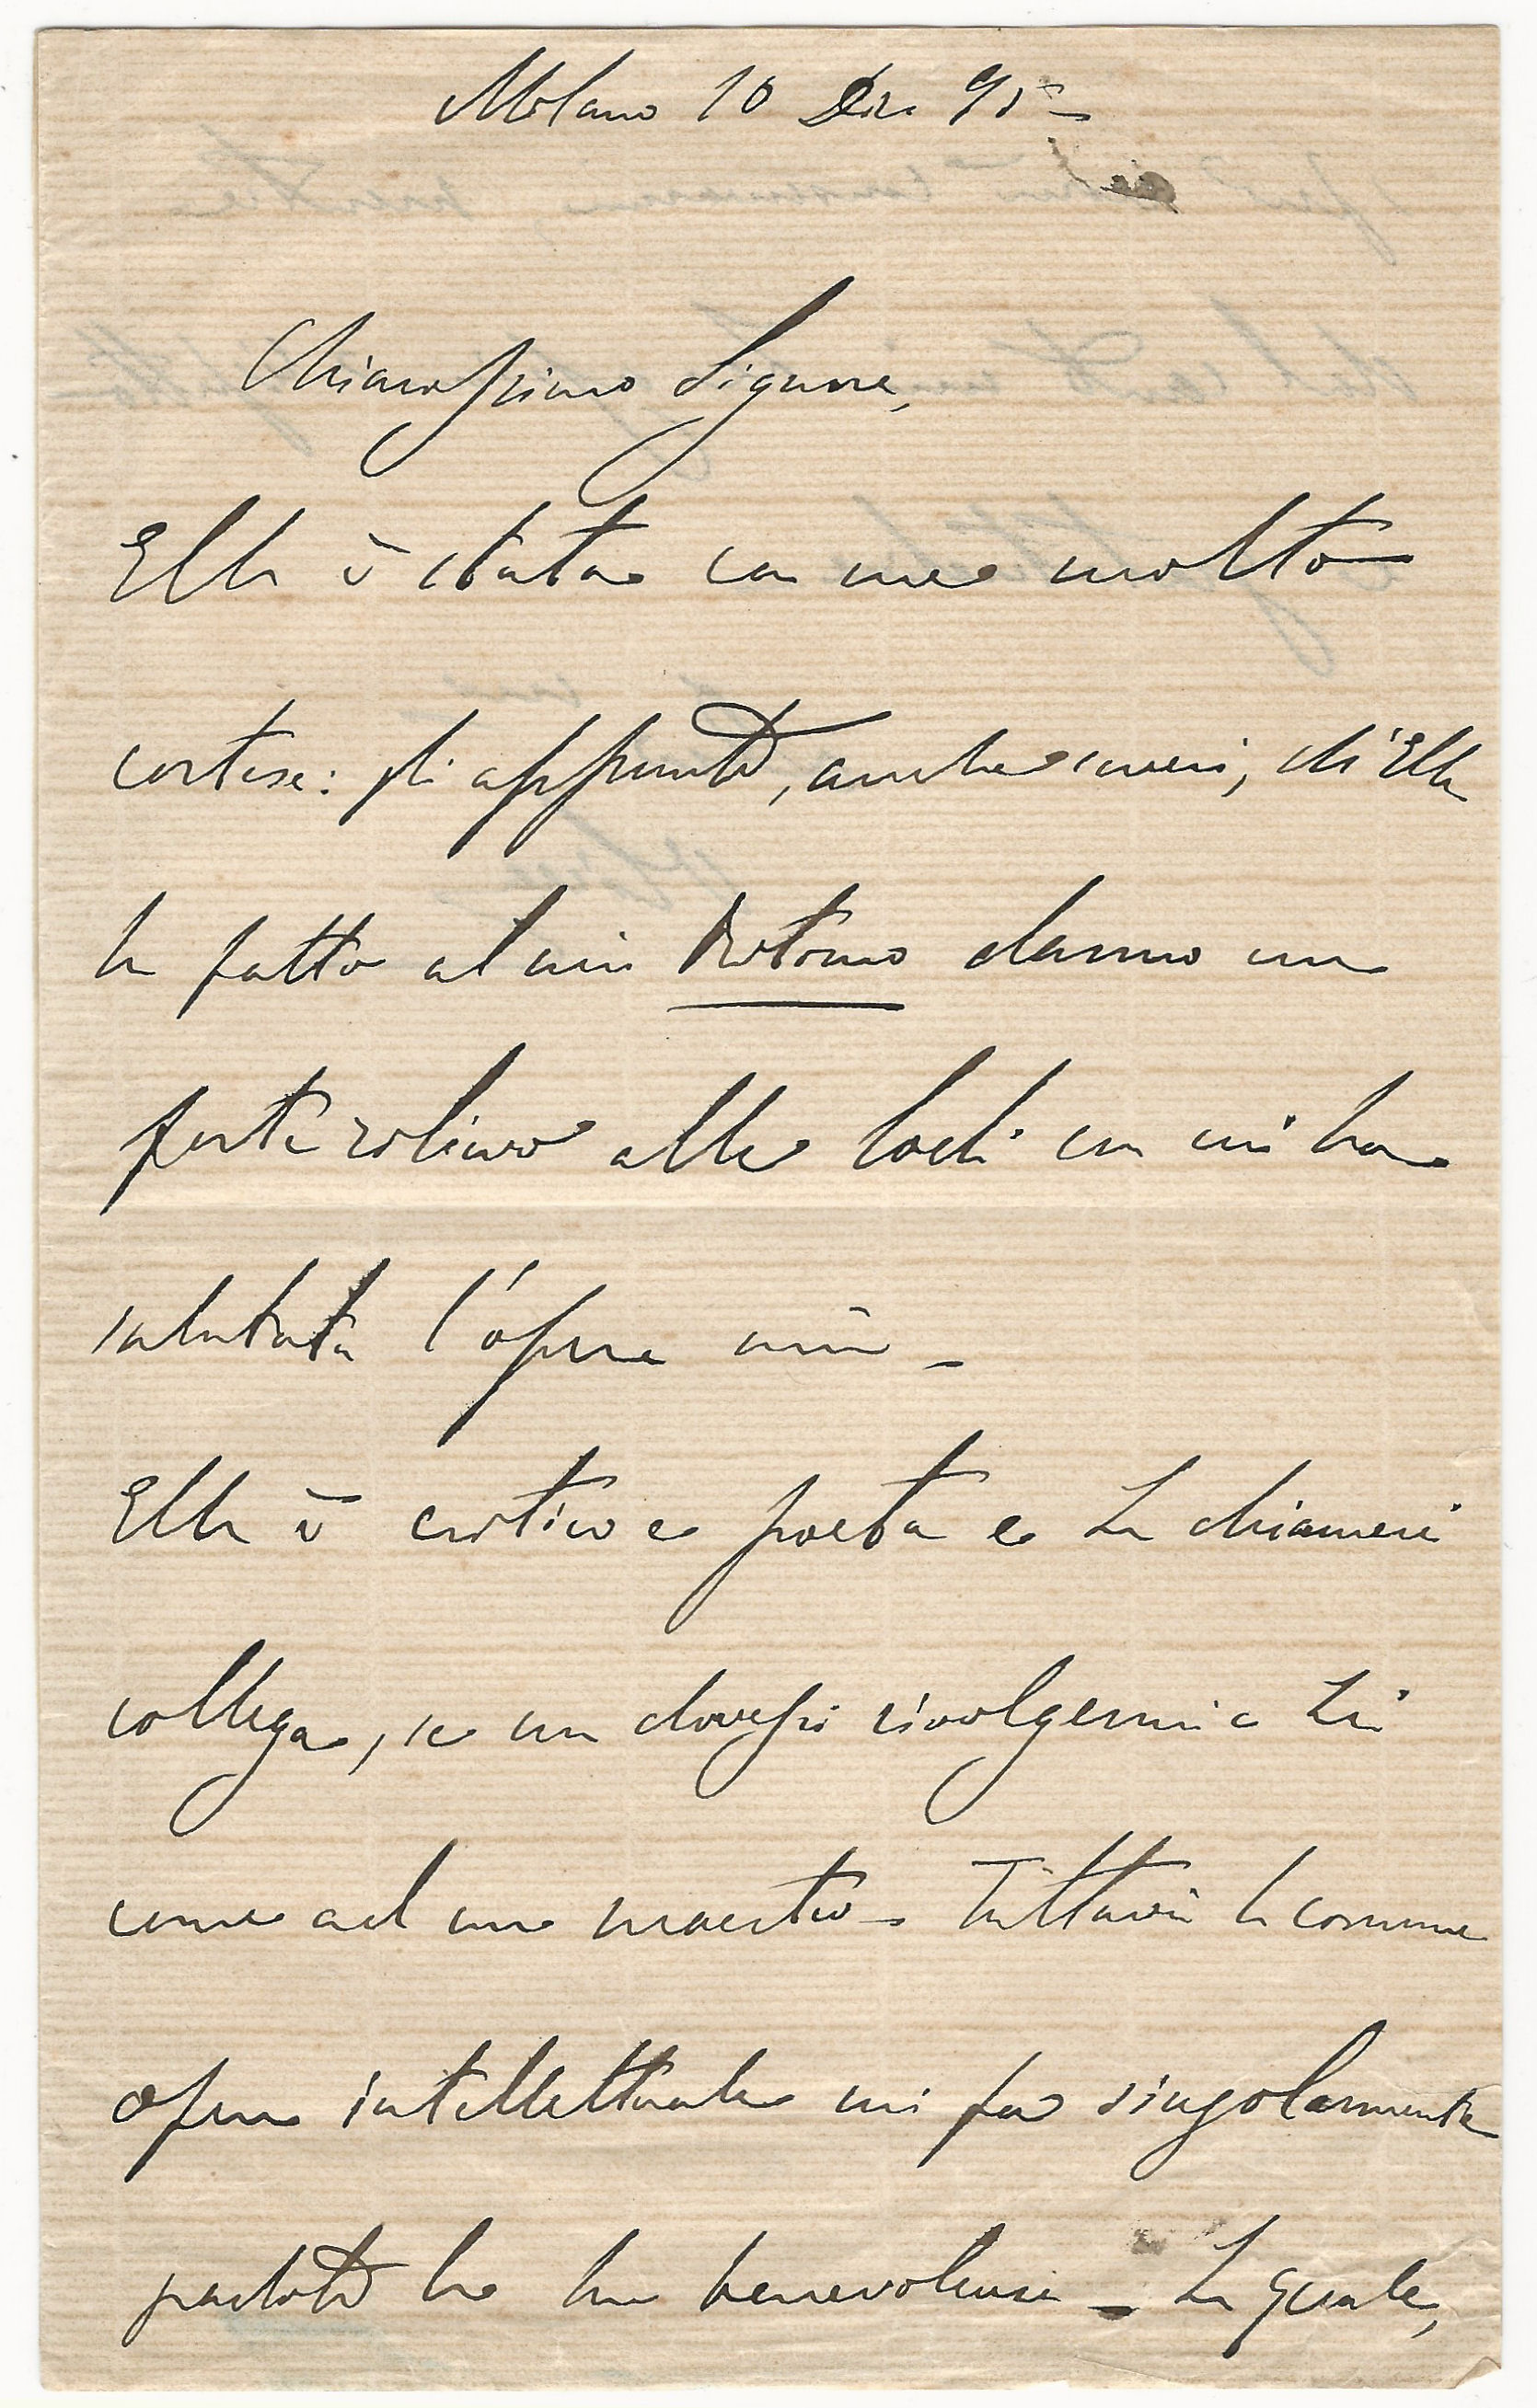 Milano 10 Dic 95 –
Chiarissimo Signore,
Ella è stata con me molto
cortese: gli appunti, anche severi, ch'Ella
ha fatto al mio danno un
forte rilievo alle lodi con cui ha
salutata l'opera mia –
Ella è critico e poeta e La chiamerei
collega, se non dovessi rivolgermi a Lei
come ad un maestro – Tuttavia la comune
opera intellettuale mi fa singolarmente
la Sua benevolenza – La quale,